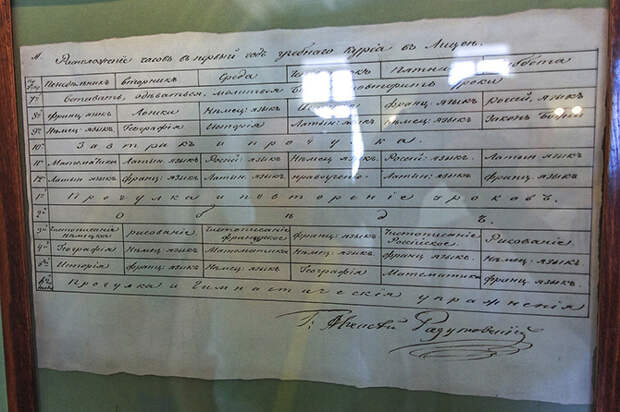 Расположеніе часовъ въ первый годъ учебнаго курса въ Лицеѣ.
Понедѣльникъ Вторникъ Среда Пятница Суббота
7й Вставать, одѣваться, молиться повторить уроки
8й Франц: языкъ Логика Нѣмец: языкъ Франц: языкъ Россій: языкъ
9й Нѣмец: языкъ Географія Исторія Латин: языкъ Нѣмец: языкъ Законъ Божій
10й Завтракъ и прогулка.
11й Математика Латин: языкъ Россій: языкъ Нѣмец: языкъ Россій: языкъ. Латин: языкъ
12й Латин: языкъ Франц: языкъ Латин: языкъ нравоученіе Латин: языкъ Франц: языкъ.
1й Прогулка и повтореніе уроковъ.
2й Обѣдъ
3й Чистописаніе нѣмецкое рисованіе Чистописаніе французское Франц: языкъ Чистописаніе Россійское Рисованіе.
4й Географія Нѣмец: языкъ Математика Нѣмец: языкъ Франц: языкъ. Нѣмец: языкъ
5й Исторія Франц: языкъ Нѣмец: языкъ Географія Математика Франц: языкъ.
Прогулка и Гимнастическія упражненія